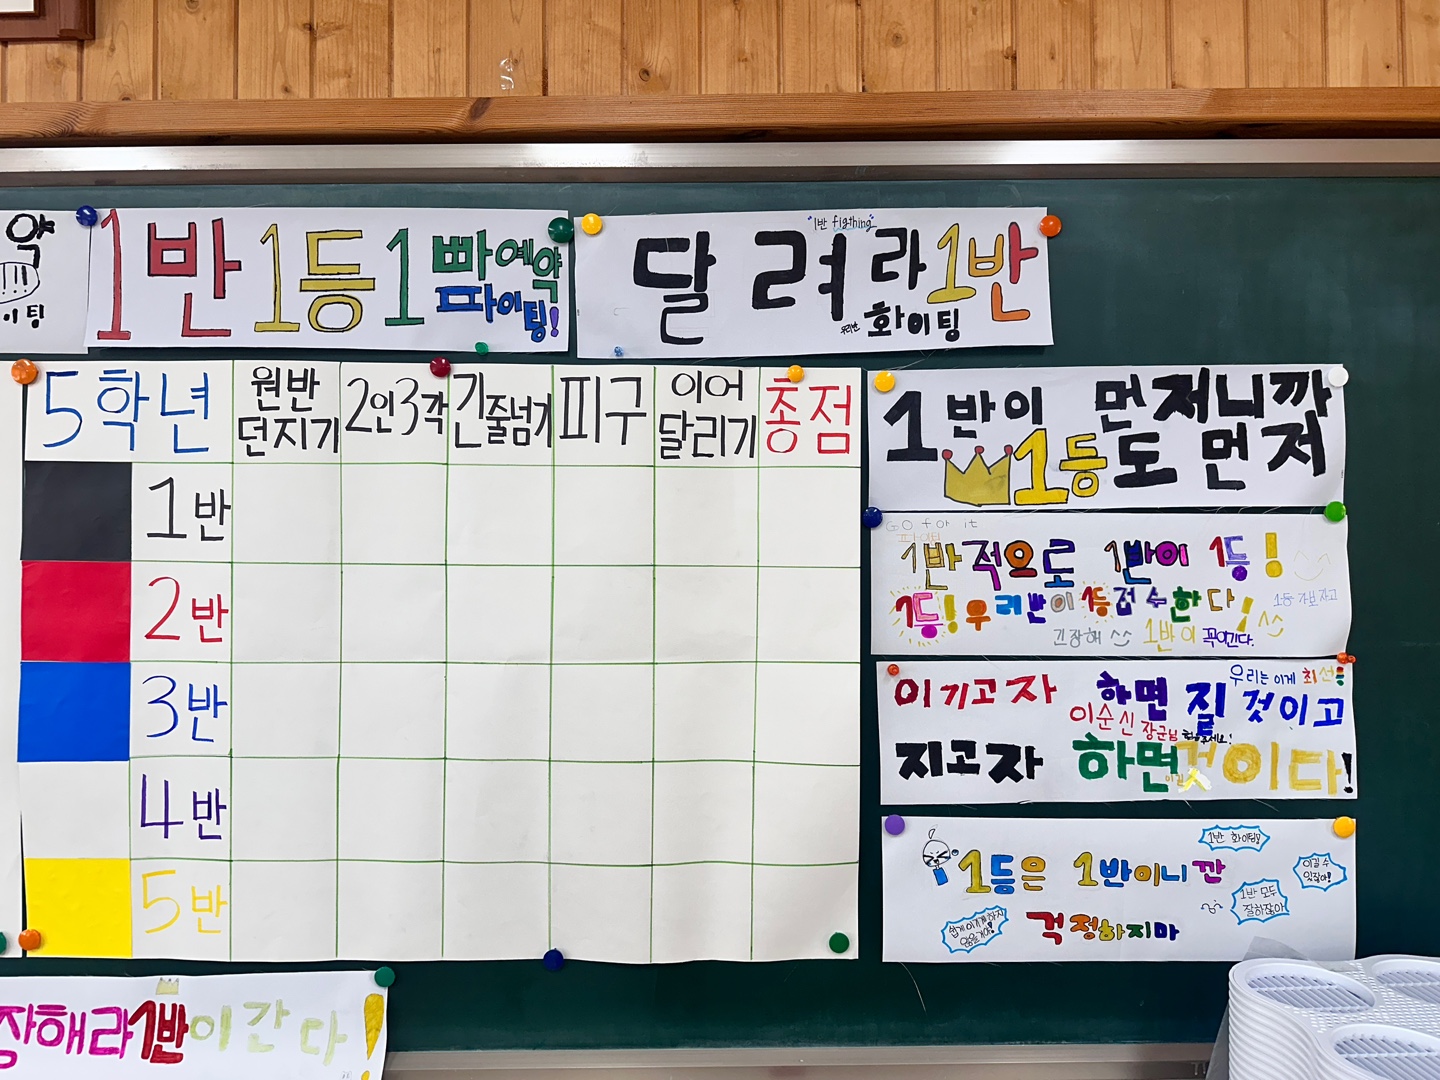 약
이팅
1반 1등 1빠 예약
파이팅!
"1반 figthing"
달려라 1반
우리반 화이팅
5학년 원반던지기 2인3각 긴줄넘기 피구 이어달리기 총점
1반
2반
3반
4반
5반
1반이 먼저니까
1등도 먼저
GO for it
파이팅
1반적으로 1반이 1등!
1등! 우리반이 1등 접수한다!^^
1등 가보자고
긴장해 ^^ 1반이 꼭이긴다.
우리는 이게 최선!
이기고자 하면 질 것이고
이순신 장군님
지고자 하면 것이다!
1반 화이팅!!
이길 수
있잖아!
1등은 1반이니깐
1반 모두
잘하잖아
쉽게 이기게 하지
않을거야!
걱정하지마
장해라 1반이 간다!